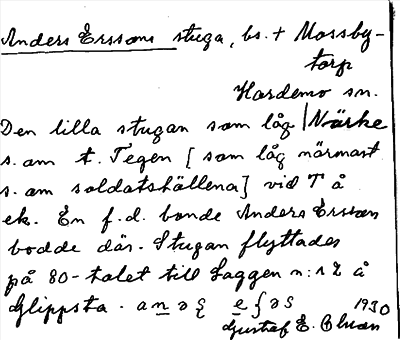 Anders Erssons stuga, bs. t Mossby-
torp
Hardemo sn.
Den lilla stugan som låg Närke
s. om t. Tegen [som låg närmast
s. om soldatshällena] vid T å
ek. En f.d. bonde Anders Ersson
bodde där. Stugan flyttades
på 80-talet till Laggen n:r 2 å
Glippsta.
1930
Gustaf E. Olsson